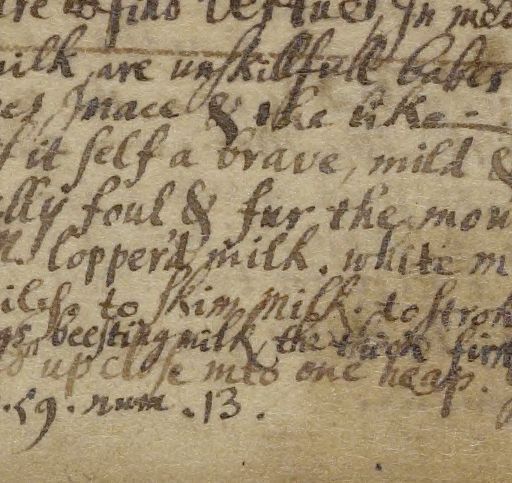 to find Vertues, in
milk, are unskillfull babes
& the like
it self a brave, mild &
foul & fur the mou
lopper'd milk. white m
to skim milk. to strok
beesting milk, the thick first
up close into one heap.
.59. num .13.